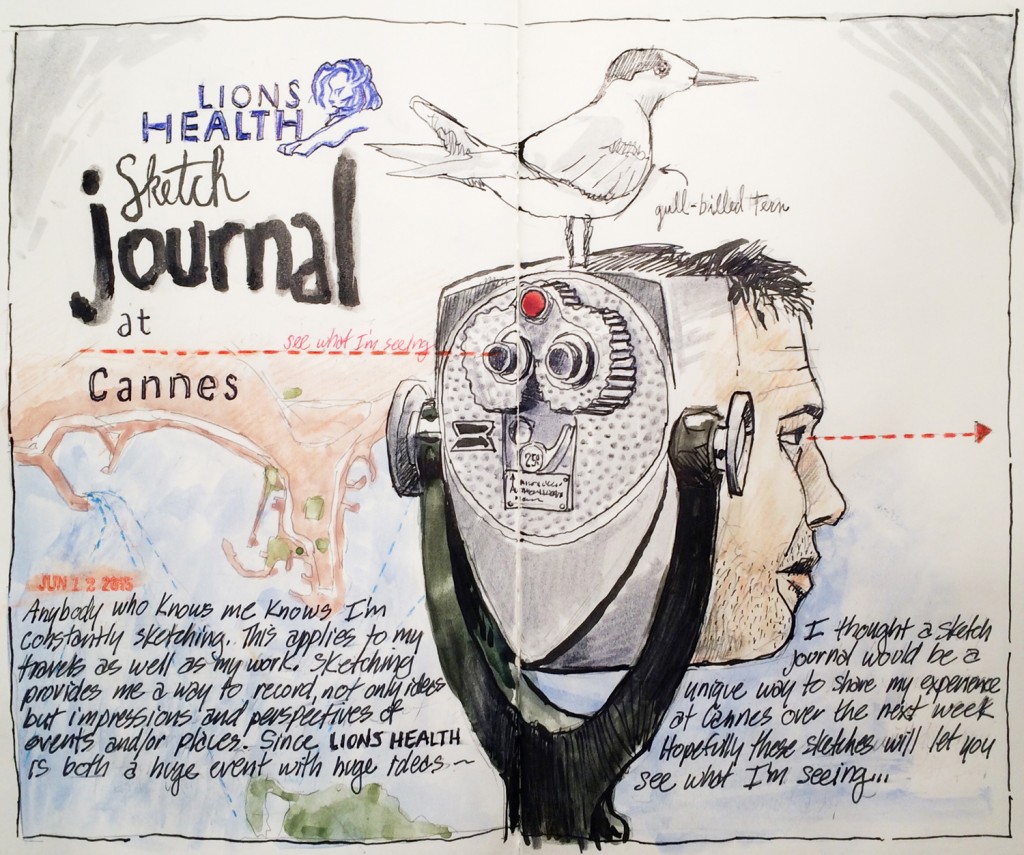 LIONS
HEALTH
Sketch
journal
at
Cannes
gull-billed tern
see what I'm seeing
25¢
JUN 12 2015
Anybody who knows me knows I'm
constantly sketching. This applies to my
travels as well as my work. Sketching
provides me a way to record, not only ideas
but impressions and perspectives of
events and/or places. Since LIONS HEALTH
is both a huge event with huge ideas ~
I thought a sketch
journal would be a
unique way to share my experience
at Cannes over the next week
Hopefully these sketches will let you
see what I'm seeing...